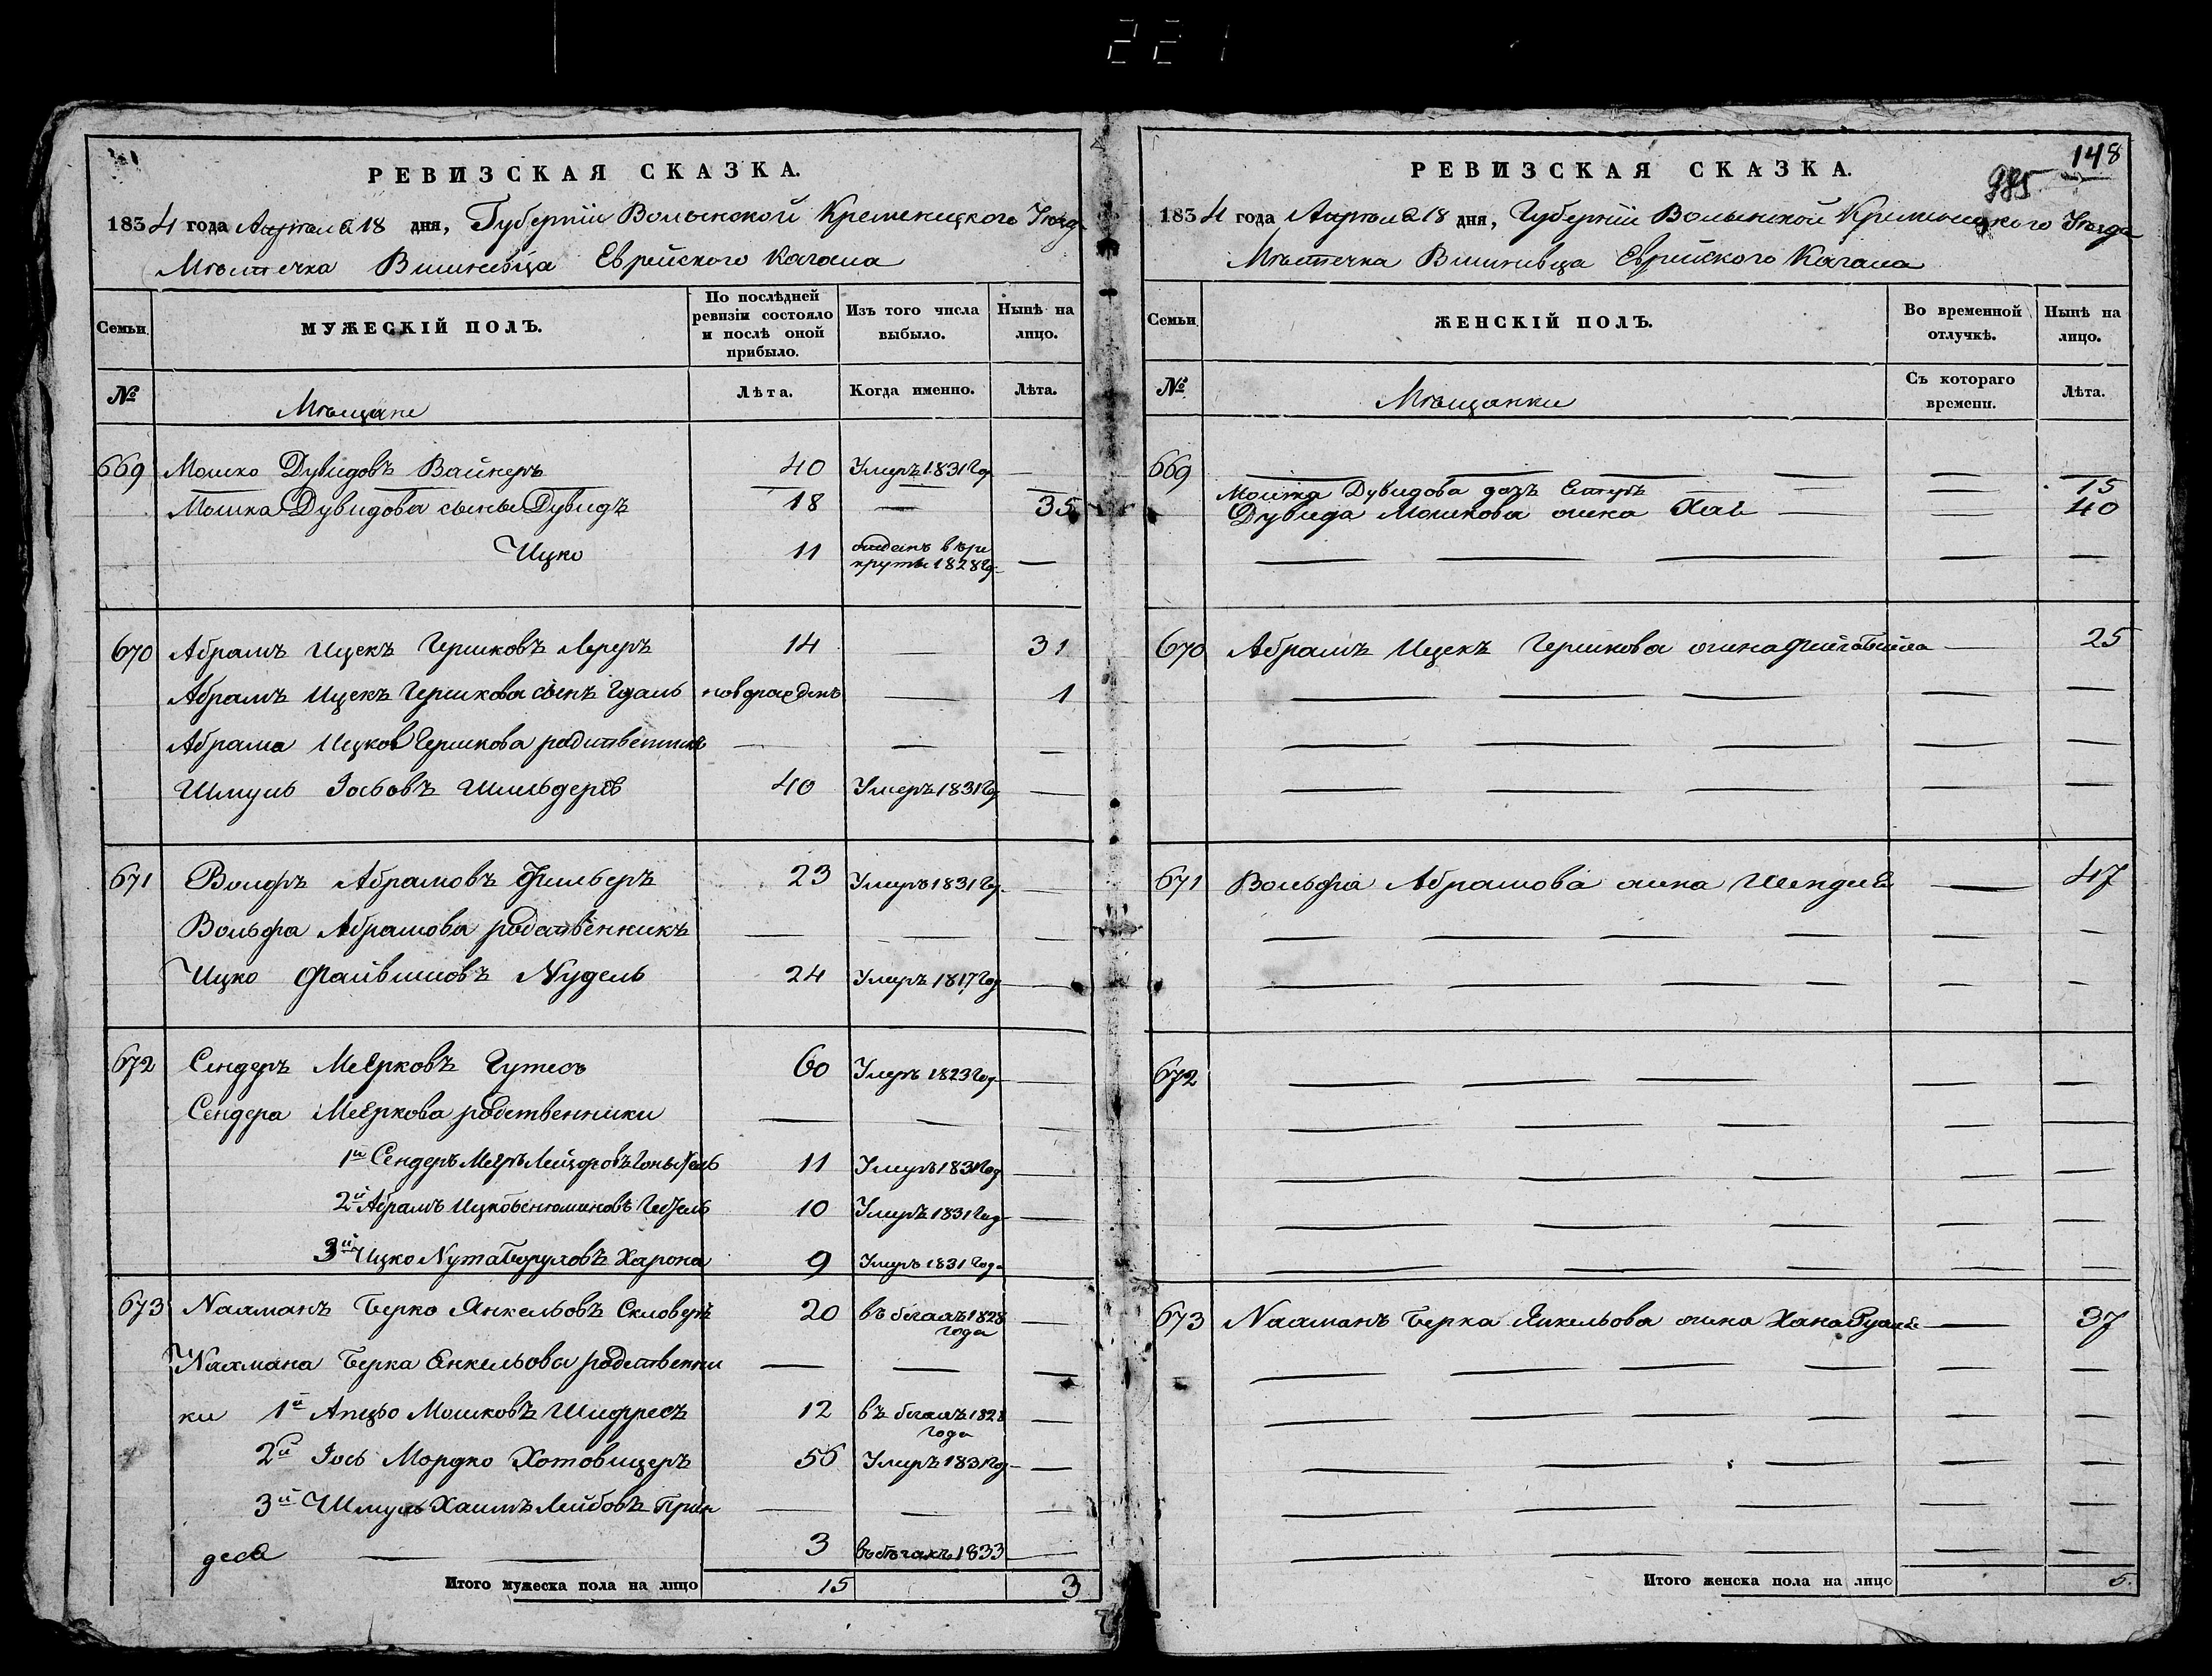 221
РЕВИЗСКАЯ СКАЗКА.
1834 года Апреля 18 дня, Губерніи Волынской Кременецкого Уезда
Мѣстечка Вишневца Еврейского Кагала
Семьи
МУЖЕСКІЙ ПОЛЪ.
По послѣдней ревизіи состояло и послѣ оной прибыло.
Изъ того числа выбыло.
Нынѣ на лицо.
№
Мѣщане
Лѣта.
Когда именно.
Лѣта.
669 Мошко Дувидовъ Вайнеръ 40 Умеръ 1831 год —
Мошка Дувидова сынъ Дувидъ 18 — 35
Ицко 11 отданъ въ ре
круты 1828 г —
670 Абрамъ Ицекъ Гершковъ Лереръ 14 — 31
Абрамъ Ицекъ Гершкова сынъ новорожденъ — 1
Абрама Ицков Гершкова родственникъ — — —
Шмуль Іосьовъ 40 Умеръ 1831 год —
671 Вольфъ Абрамовъ Фильберъ 23 Умеръ 1831 год —
Вольфа Абрамова родственникъ — — —
Ицко Файвишовъ Нудель 24 Умеръ 1817 год —
672 Сендеръ Меерковъ Гутесъ 60 Умеръ 1823 год —
Сендера Мееркова родственники — — —
1й Сендеръ Мееръ 11 Умеръ 1831 год —
2й Абрамъ Ицко 10 Умеръ 1831 год —
3й Ицко Нута 9 Умеръ 1831 года
673 Нахманъ Берко Янкельовъ 20 въ бегахъ 1828 —
года
Нахмана Берка Енкельова родственни — — —
ки 1й Мошковъ Шифресъ 12 въ бегахъ 1828 —
года
2й Іось Мордко Хотовицеръ 56 Умеръ 1831 год —
3й Шмуль Хаимъ Лейбовъ Брин — — —
деса — — 3 въ бѣгахъ 1833 —
Итого мужеска пола на лицо 15 3
РЕВИЗСКАЯ СКАЗКА.
148
985
1834 года Апреля 18 дня, Губерніи Волынской Кременецкого Уезда
Мѣстечка Вишневца Еврейского Кагала
Семьи
ЖЕНСКІЙ ПОЛЪ.
Во временной отлучкѣ.
Нынѣ на лицо.
№
Мѣщанки
Съ котораго времени.
Лѣта.
669
Мошка Дувидова дочь 15
Дувида Мошкова жена Хая 40
670 Абрамъ Ицекъ Гершкова жена Фейга Бейла — 25
671 Вольфа Абрамова жена Шендля — 47
672
673 Нахманъ Берка Янкельова жена Хана — 37
Итого женска пола на лицо 5.